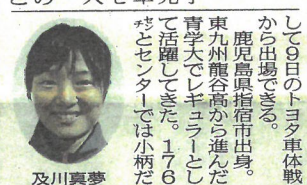 して9日のトヨタ車体戦
から出場できる。
　鹿児島県指宿市出身。
東九州龍谷高から進んだ
青学大でレギュラーとし
て活躍してきた。176
センチとセンターでは小柄だ
及川真夢